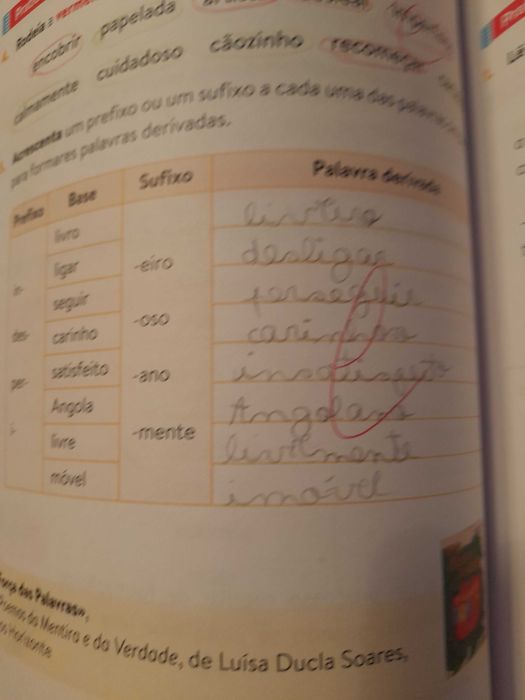 Rodeia a verme
encobrir papelada
calmamente cuidadoso cãozinho recomeçar
Acrescenta um prefixo ou um sufixo a cada uma das palavras
para formares palavras derivadas.
Prefixo Base Sufixo Palavra derivada
livro livreiro
ligar -eiro desligar
in- seguir perseguir
des- carinho -oso carinhoso
per- satisfeito -ano insatisfeito
Angola Angolano
i- livre -mente livremente
móvel imóvel
Força das Palavras»,
Poemas da Mentira e da Verdade, de Luísa Ducla Soares,
os Horizonte